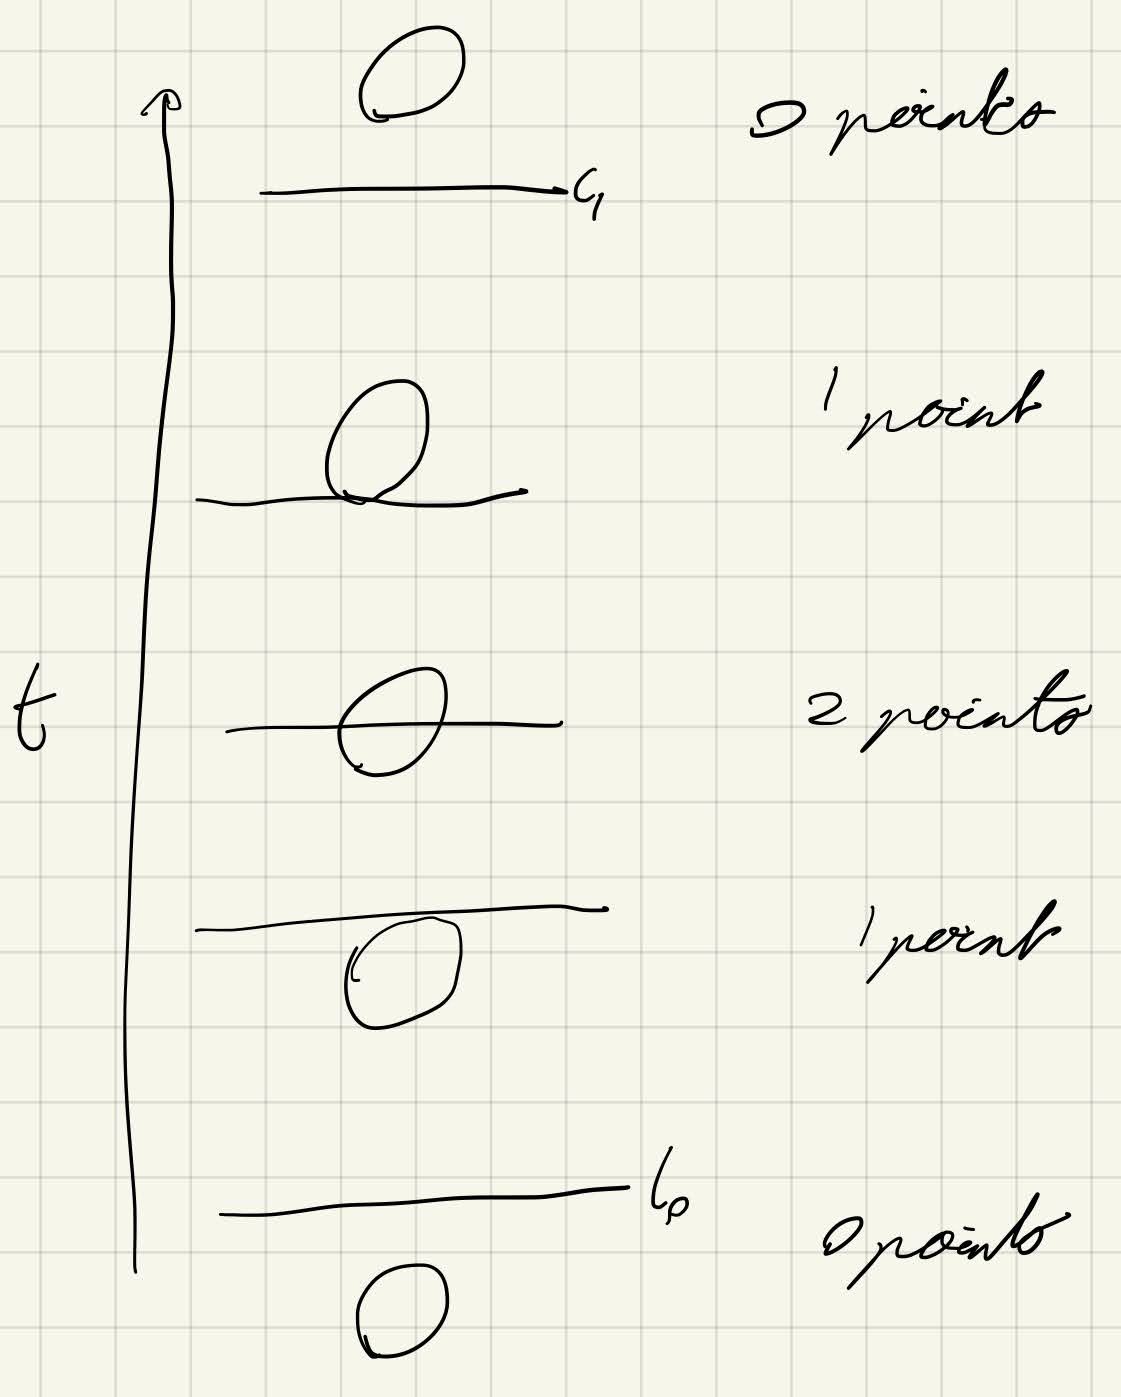 0 points
C₁
1 point
t
2 points
1 point
C₀
0 points